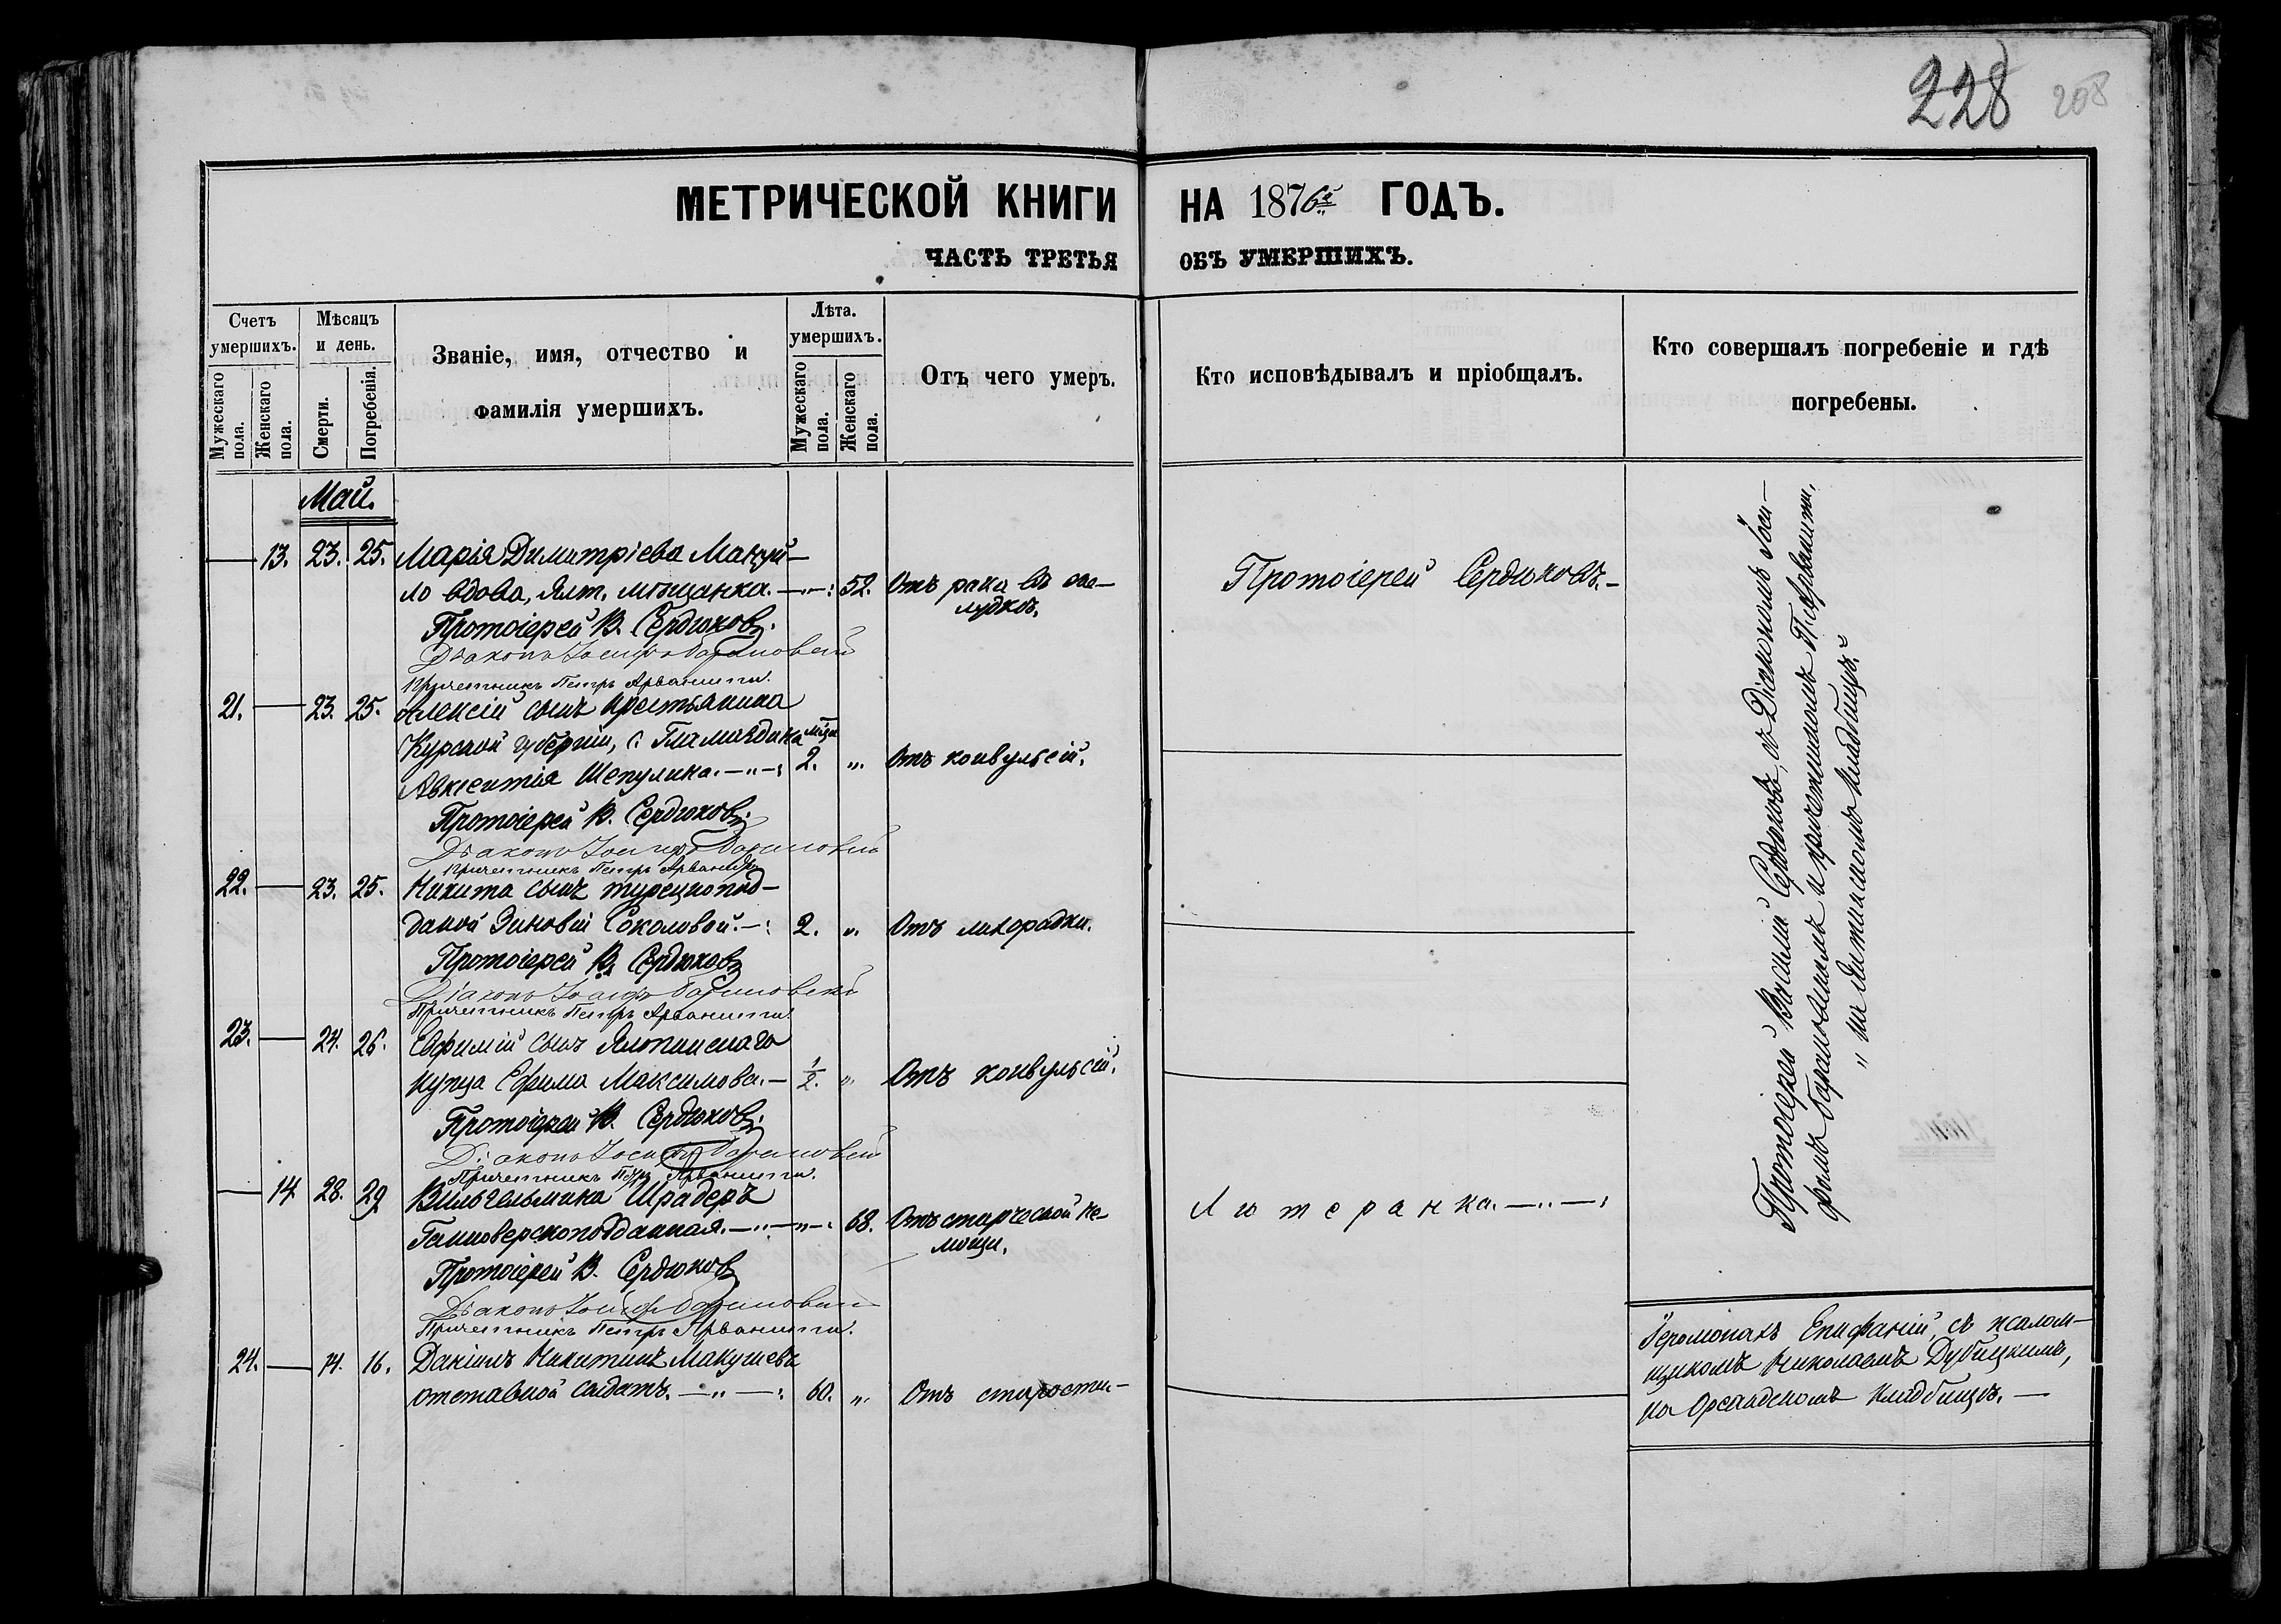 228 208
МЕТРИЧЕСКОЙ КНИГИ НА 1876й ГОДЪ.
ЧАСТЬ ТРЕТЬЯ ОБЪ УМЕРШИХЪ.
Счетъ умершихъ.
Мужескаго пола.
Женскаго пола.
Мѣсяцъ и день.
Смерти.
Погребенія.
Званіе, имя, отчество и
фамилія умершихъ.
Лѣта.
умершихъ.
Мужескаго пола.
Женскаго пола.
Отъ чего умеръ.
Кто исповѣдывалъ и пріобщалъ.
Кто совершалъ погребеніе и гдѣ
погребены.
Май.
— 13. 23. 25. Марія Димитріева Мануй-
ло вдова, Ялт. мѣщанка. —„—: 52. Отъ рака въ же-
лудкѣ.
Протоіерей Сердюковъ.-
Протоіерей В. Сердюковъ.
Діаконъ Іосифъ Барановскій
Причетникъ Петръ Арванити.
21. — 23. 25. Алексій сынъ крестьянина
Курской губерніи, с.
Авксентія Шепулина. —„—: 2. „ Отъ конвульсій.
Протоіерей В. Сердюковъ.
Діаконъ Іосифъ Барановскій
Причетникъ Петръ Арванити
22. — 23. 25. Никита сынъ турецкопод-
даной Зиновіи Соколовой. —: 2. „ Отъ лихорадки.
Протоіерей В. Сердюковъ
Діаконъ Іосифъ Барановскій
Причетникъ Петръ Арванити.
23. — 24. 26. Евфимій сынъ Ялтинскаго
купца Ефима Максимова. — 1/2. „ Отъ конвульсій.
Протоіерей В. Сердюковъ.
Діаконъ Іосифъ Барановскій
Причетникъ Петръ Арванити.
— 14 28. 29 Вильгельмина Шрадеръ
Ганноверскоподданная. —„—„—: 68. Отъ старческой не-
мощи.
Лютеранка. —„—:
Протоіерей В. Сердюковъ
Діаконъ Іосифъ Барановскій
Причетникъ Петръ Арванити.
24. — 14. 16. Даніилъ Никитинъ Макушевъ
отставной солдатъ. —„—: 60. „ Отъ старости.-
Протоіерей Василій Сердюковъ, съ Діакономъ Іоси-
фомъ Барановскимъ и причетникомъ П. Арванити,
„ на Ялтинскомъ кладбищѣ.
Іеромонахъ Епифаній, съ псалом-
щикомъ Николаемъ Дубицкимъ,
на Орсандскомъ кладбищѣ. —